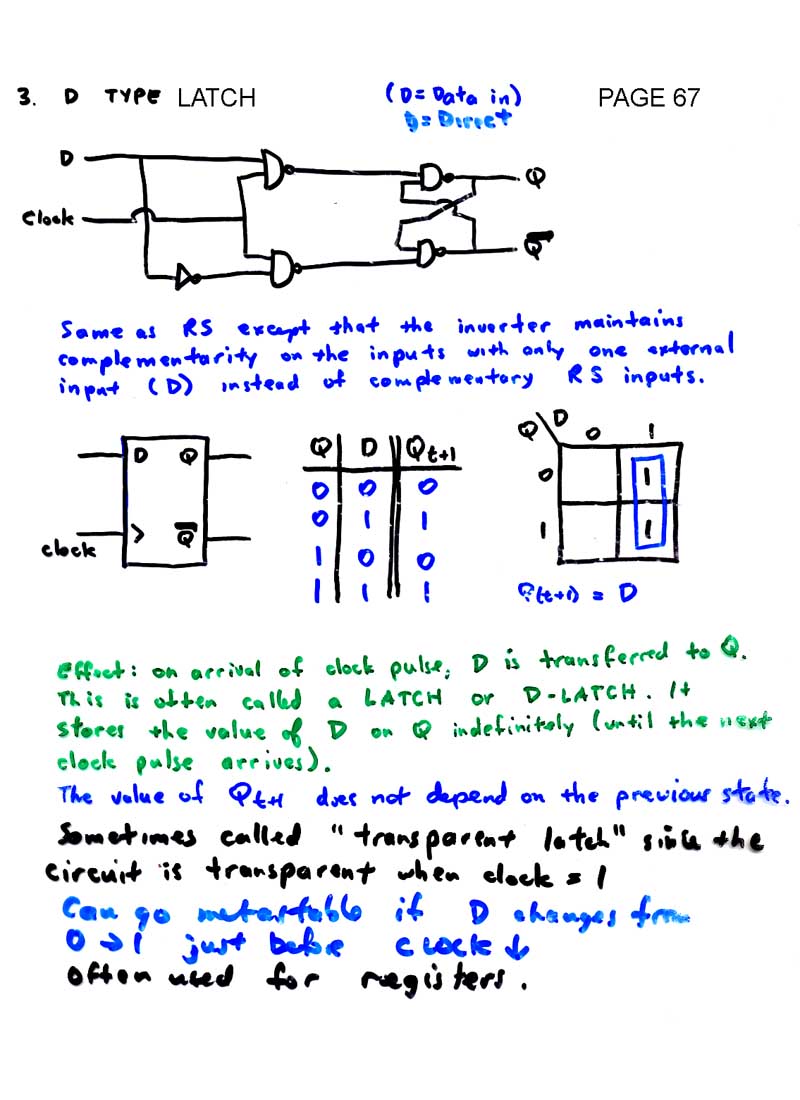 3. D TYPE LATCH (D= Data in) PAGE 67
D= Direct
D
Q
Clock
Q̅
Same as RS except that the inverter maintains
complementarity on the inputs with only one external
input (D) instead of complementary RS inputs.
D Q
clock > Q̅
Q D Qt+1
0 0 0
0 1 1
1 0 0
1 1 1
Q D 0 1
0 1
1 1
Q(t+1) = D
Effect: on arrival of clock pulse, D is transferred to Q.
This is often called a LATCH or D-LATCH. It
stores the value of D on Q indefinitely (until the next
clock pulse arrives).
The value of Qt+1 does not depend on the previous state.
Sometimes called "transparent latch" since the
circuit is transparent when clock = 1
Can go metastable if D changes from
0 → 1 just before clock ↓
often used for registers.